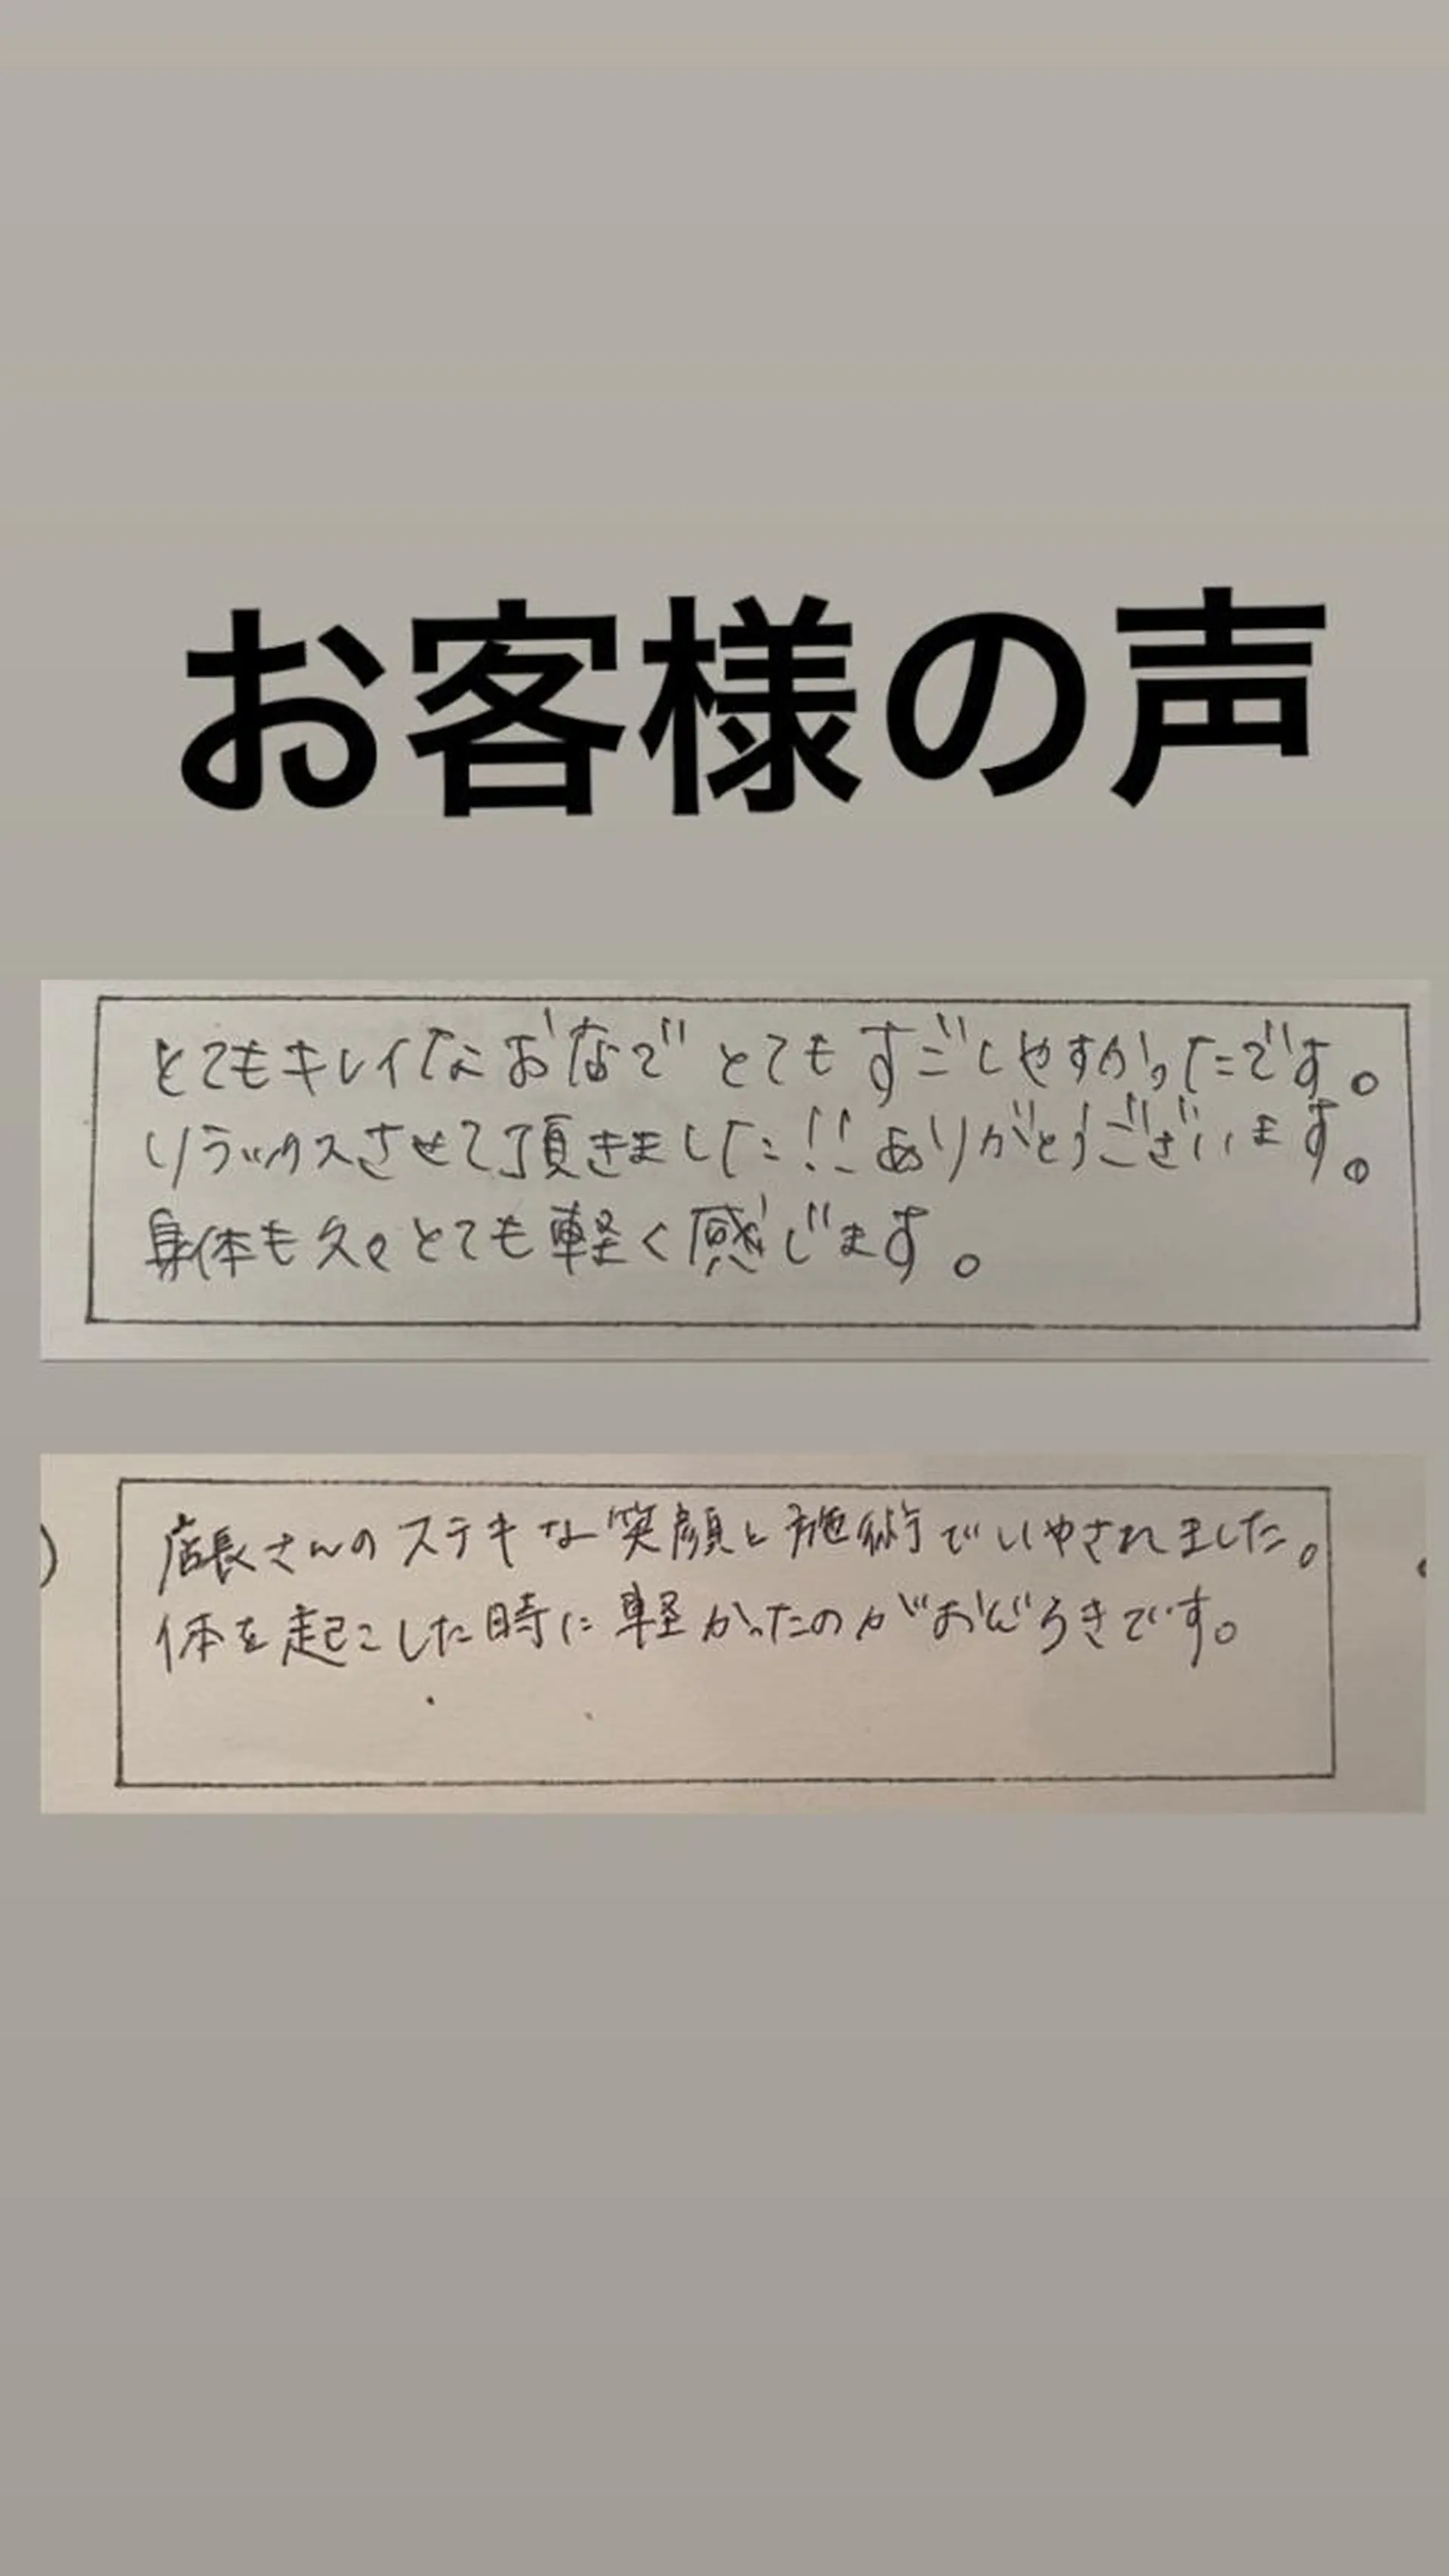 お客様の声
とてもキレイなお店で とても すごしやすかったです。
リラックスさせて頂きました!! ありがとうございます。
身体も久々とても軽く感じます。
店長さんのステキな笑顔と施術でいやされました。
体を起こした時に軽かったのがおどろきです。